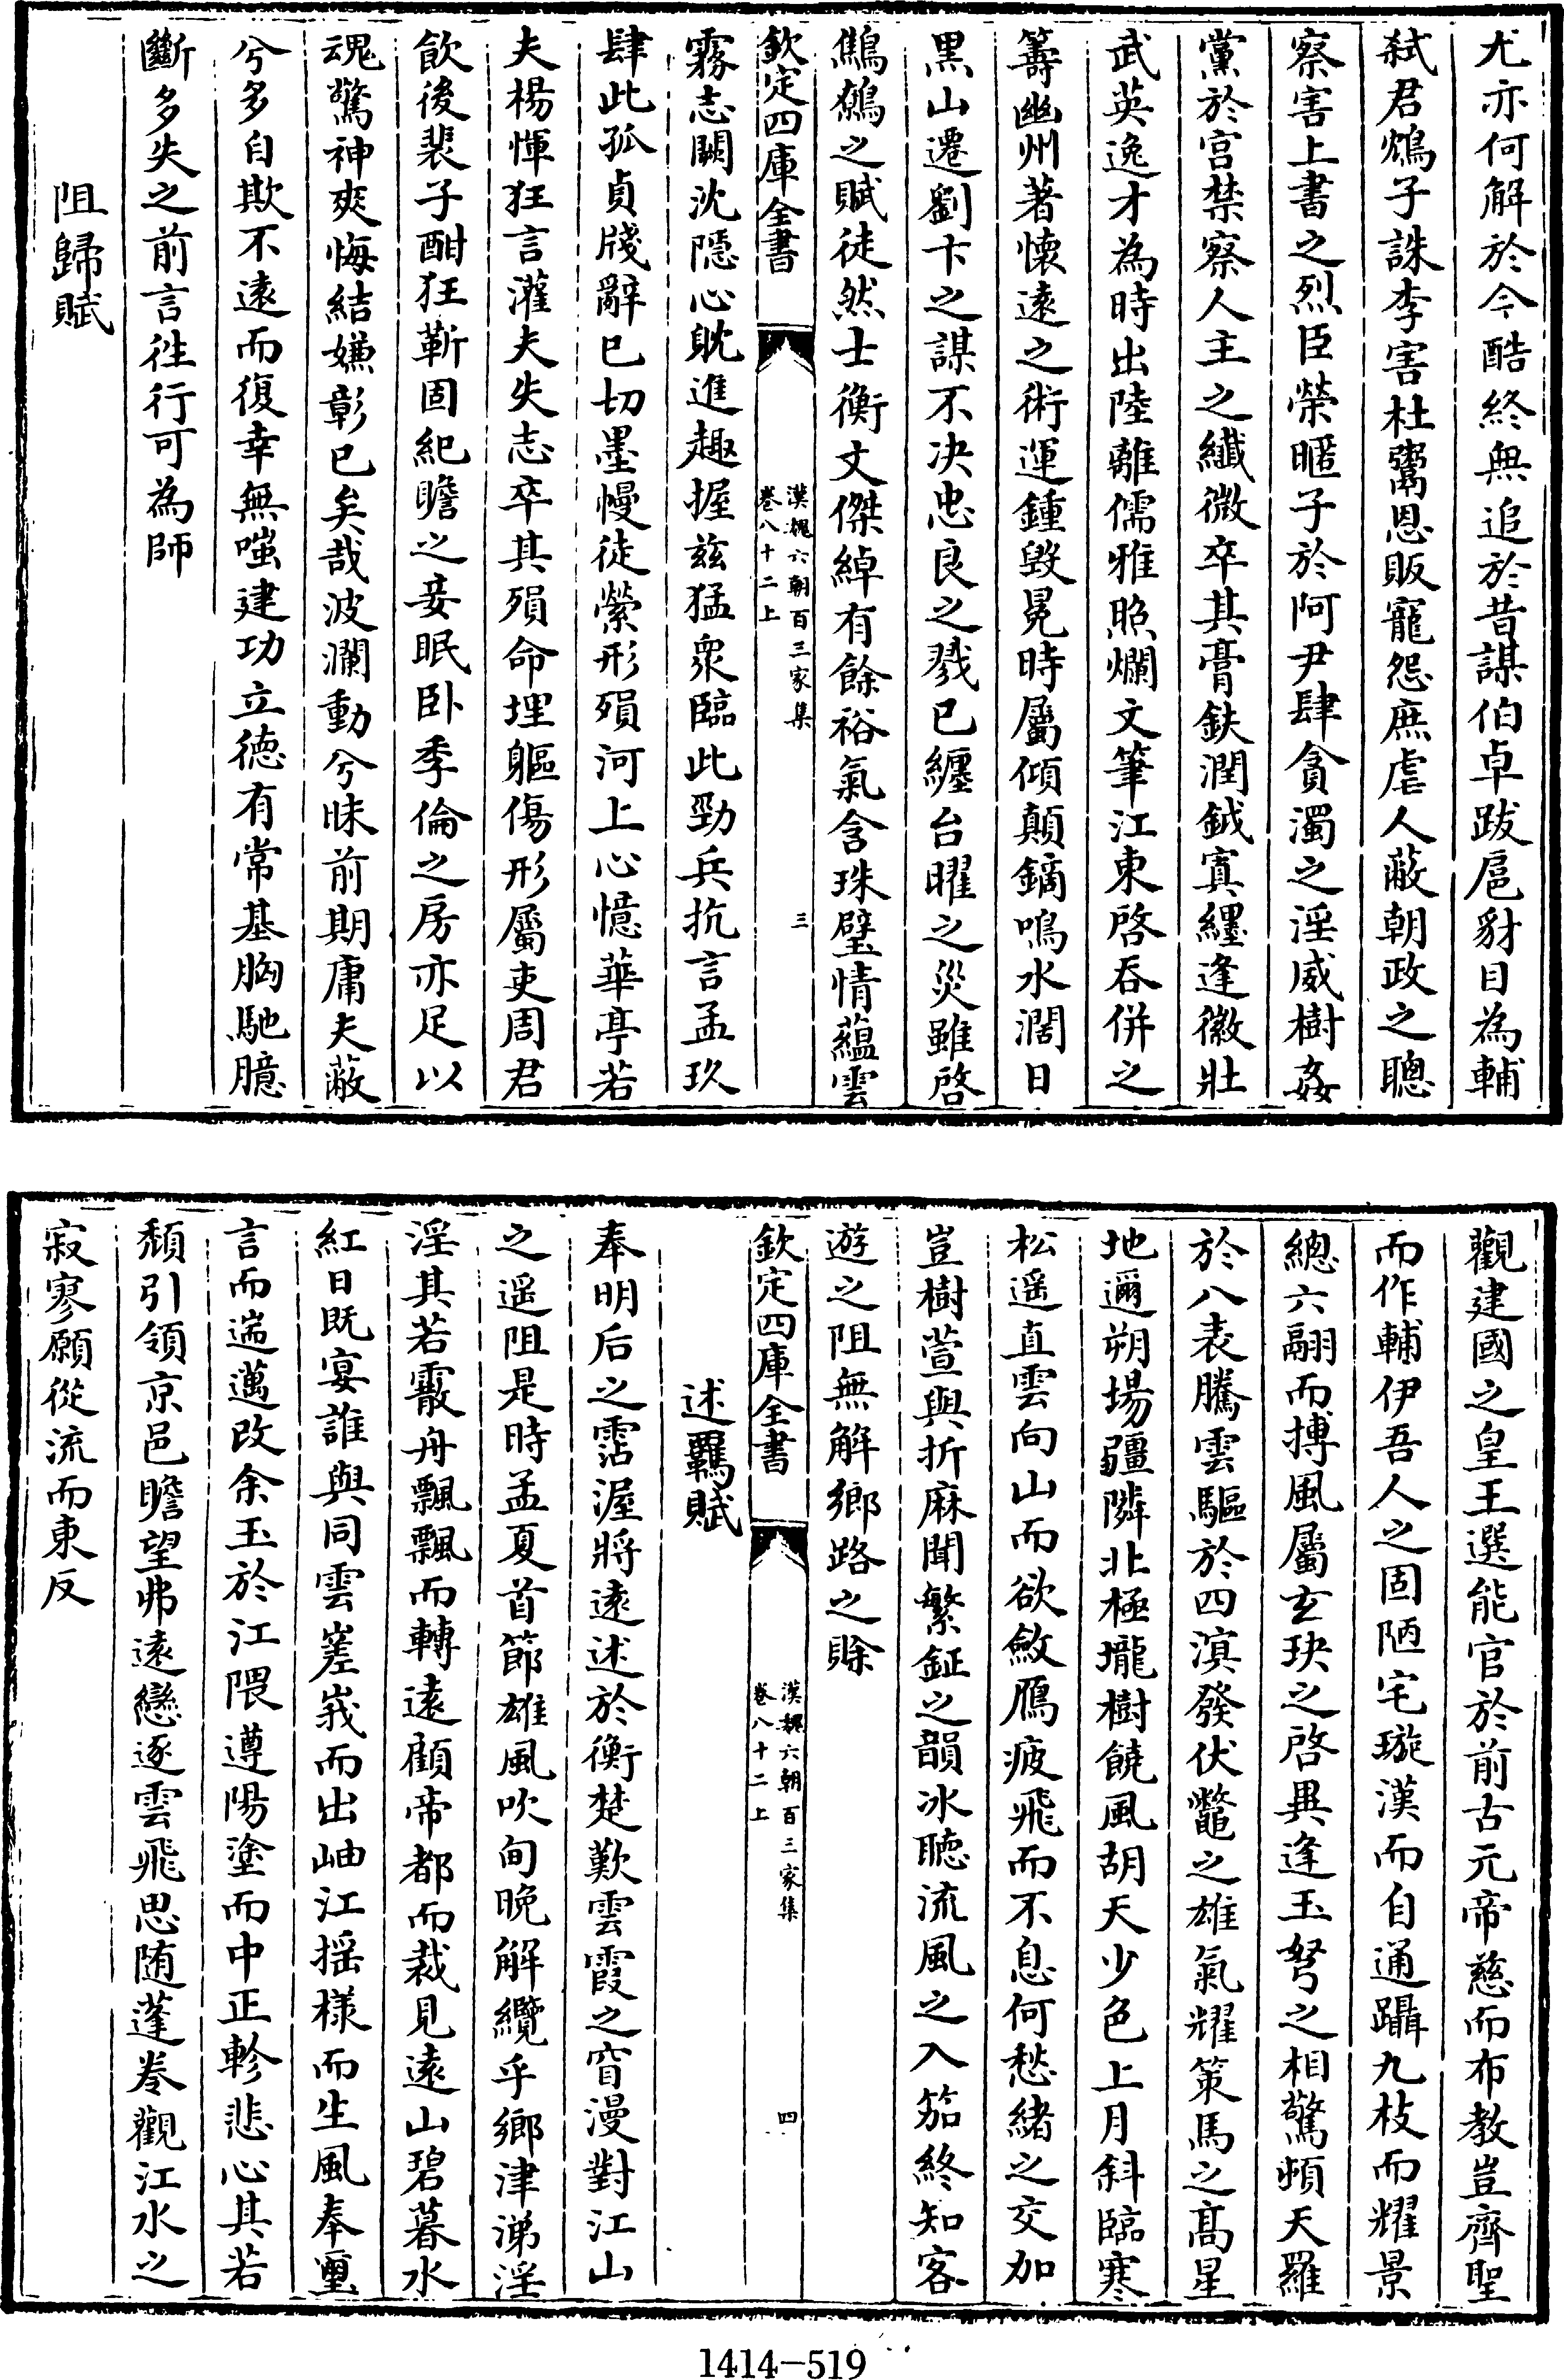 尤亦何解於今酷終無追於昔謀伯卓跋扈豺目為輔
弒君鴆子誅李害杜鬻恩販寵怨庶虐人蔽朝政之聰
察害上書之烈臣榮暱子於阿尹肆貪濁之淫威樹姦
黨於宫禁察人主之纎微卒其膏鈇潤鉞寘纆逢徽壯
武英逸才為時出陸離儒雅照爛文筆江東啓吞併之
籌幽州著懷遠之術運鍾毀冕時屬傾顛鏑鳴水濶日
黒山遷劉卞之謀不決忠良之戮已纒台曜之災雖啓
鷦鷯之賦徒然士衡文傑綽有餘裕氣含珠璧情藴雲
欽定四庫全書
漢魏六朝百三家集
卷八十二上
三
霧志闕沈隱心躭進趣握兹猛衆臨此勁兵抗言孟玖
肆此孤貞牋辭已切墨幔徒縈形殞河上心憶華亭若
夫楊惲狂言灌夫失志卒其殞命埋軀傷形屬吏周君
飲後裴子酣狂靳固紀瞻之妾眠卧季倫之房亦足以
魂驚神爽悔結嫌彰已矣哉波瀾動兮昧前期庸夫蔽
兮多自欺不遠而復幸無嗤建功立德有常基胸馳臆
斷多失之前言徃行可為師
阻歸賦
觀建國之皇王選能官於前古元帝慈而布教豈齊聖
而作輔伊吾人之固陋宅璇漢而自通躡九枝而耀景
總六翮而摶風屬玄玦之啓異逢玉弩之相驚頓天羅
於八表騰雲驅於四溟發伏鼈之雄氣耀䇿馬之髙星
地邇朔場疆隣北極壠樹饒風胡天少色上月斜臨寒
松遥直雲向山而欲斂鴈疲飛而不息何愁緒之交加
豈樹萱與折麻聞繁鉦之韻冰聴流風之入笳終知客
遊之阻無解鄉路之賖
欽定四庫全書
漢魏六朝百三家集
卷八十二上
四
述羈賦
奉明后之霑渥將遠述於衡楚歎雲霞之窅漫對江山
之遥阻是時孟夏首節雄風吹甸晚解纜乎鄉津涕淫
淫其若霰舟飄飄而轉遠顧帝都而裁見遠山碧暮水
紅日既宴誰與同雲嵳峩而出岫江揺様而生風奉璽
言而遄邁改余玉於江隈遵陽塗而中正軫悲心其若
頽引領京邑瞻望弗遠戀逐雲飛思随蓬卷觀江水之
寂寥願從流而東反
1414-519